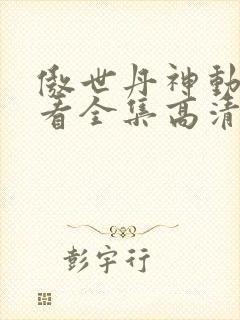 傲世丹神動
看全集高清
彭宇行